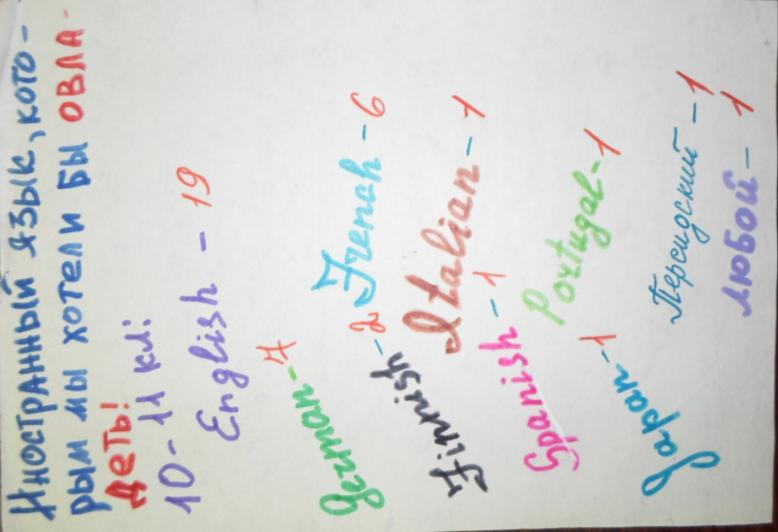 Иностранный язык, кото-
рым мы хотели бы овла-
деть!
10-11 кл:
English - 19
German - 7
French - 6
Finnish - 2
Italian - 1
Spanish - 1
Portugal - 1
Japan - 1
Персидский - 1
любой - 1